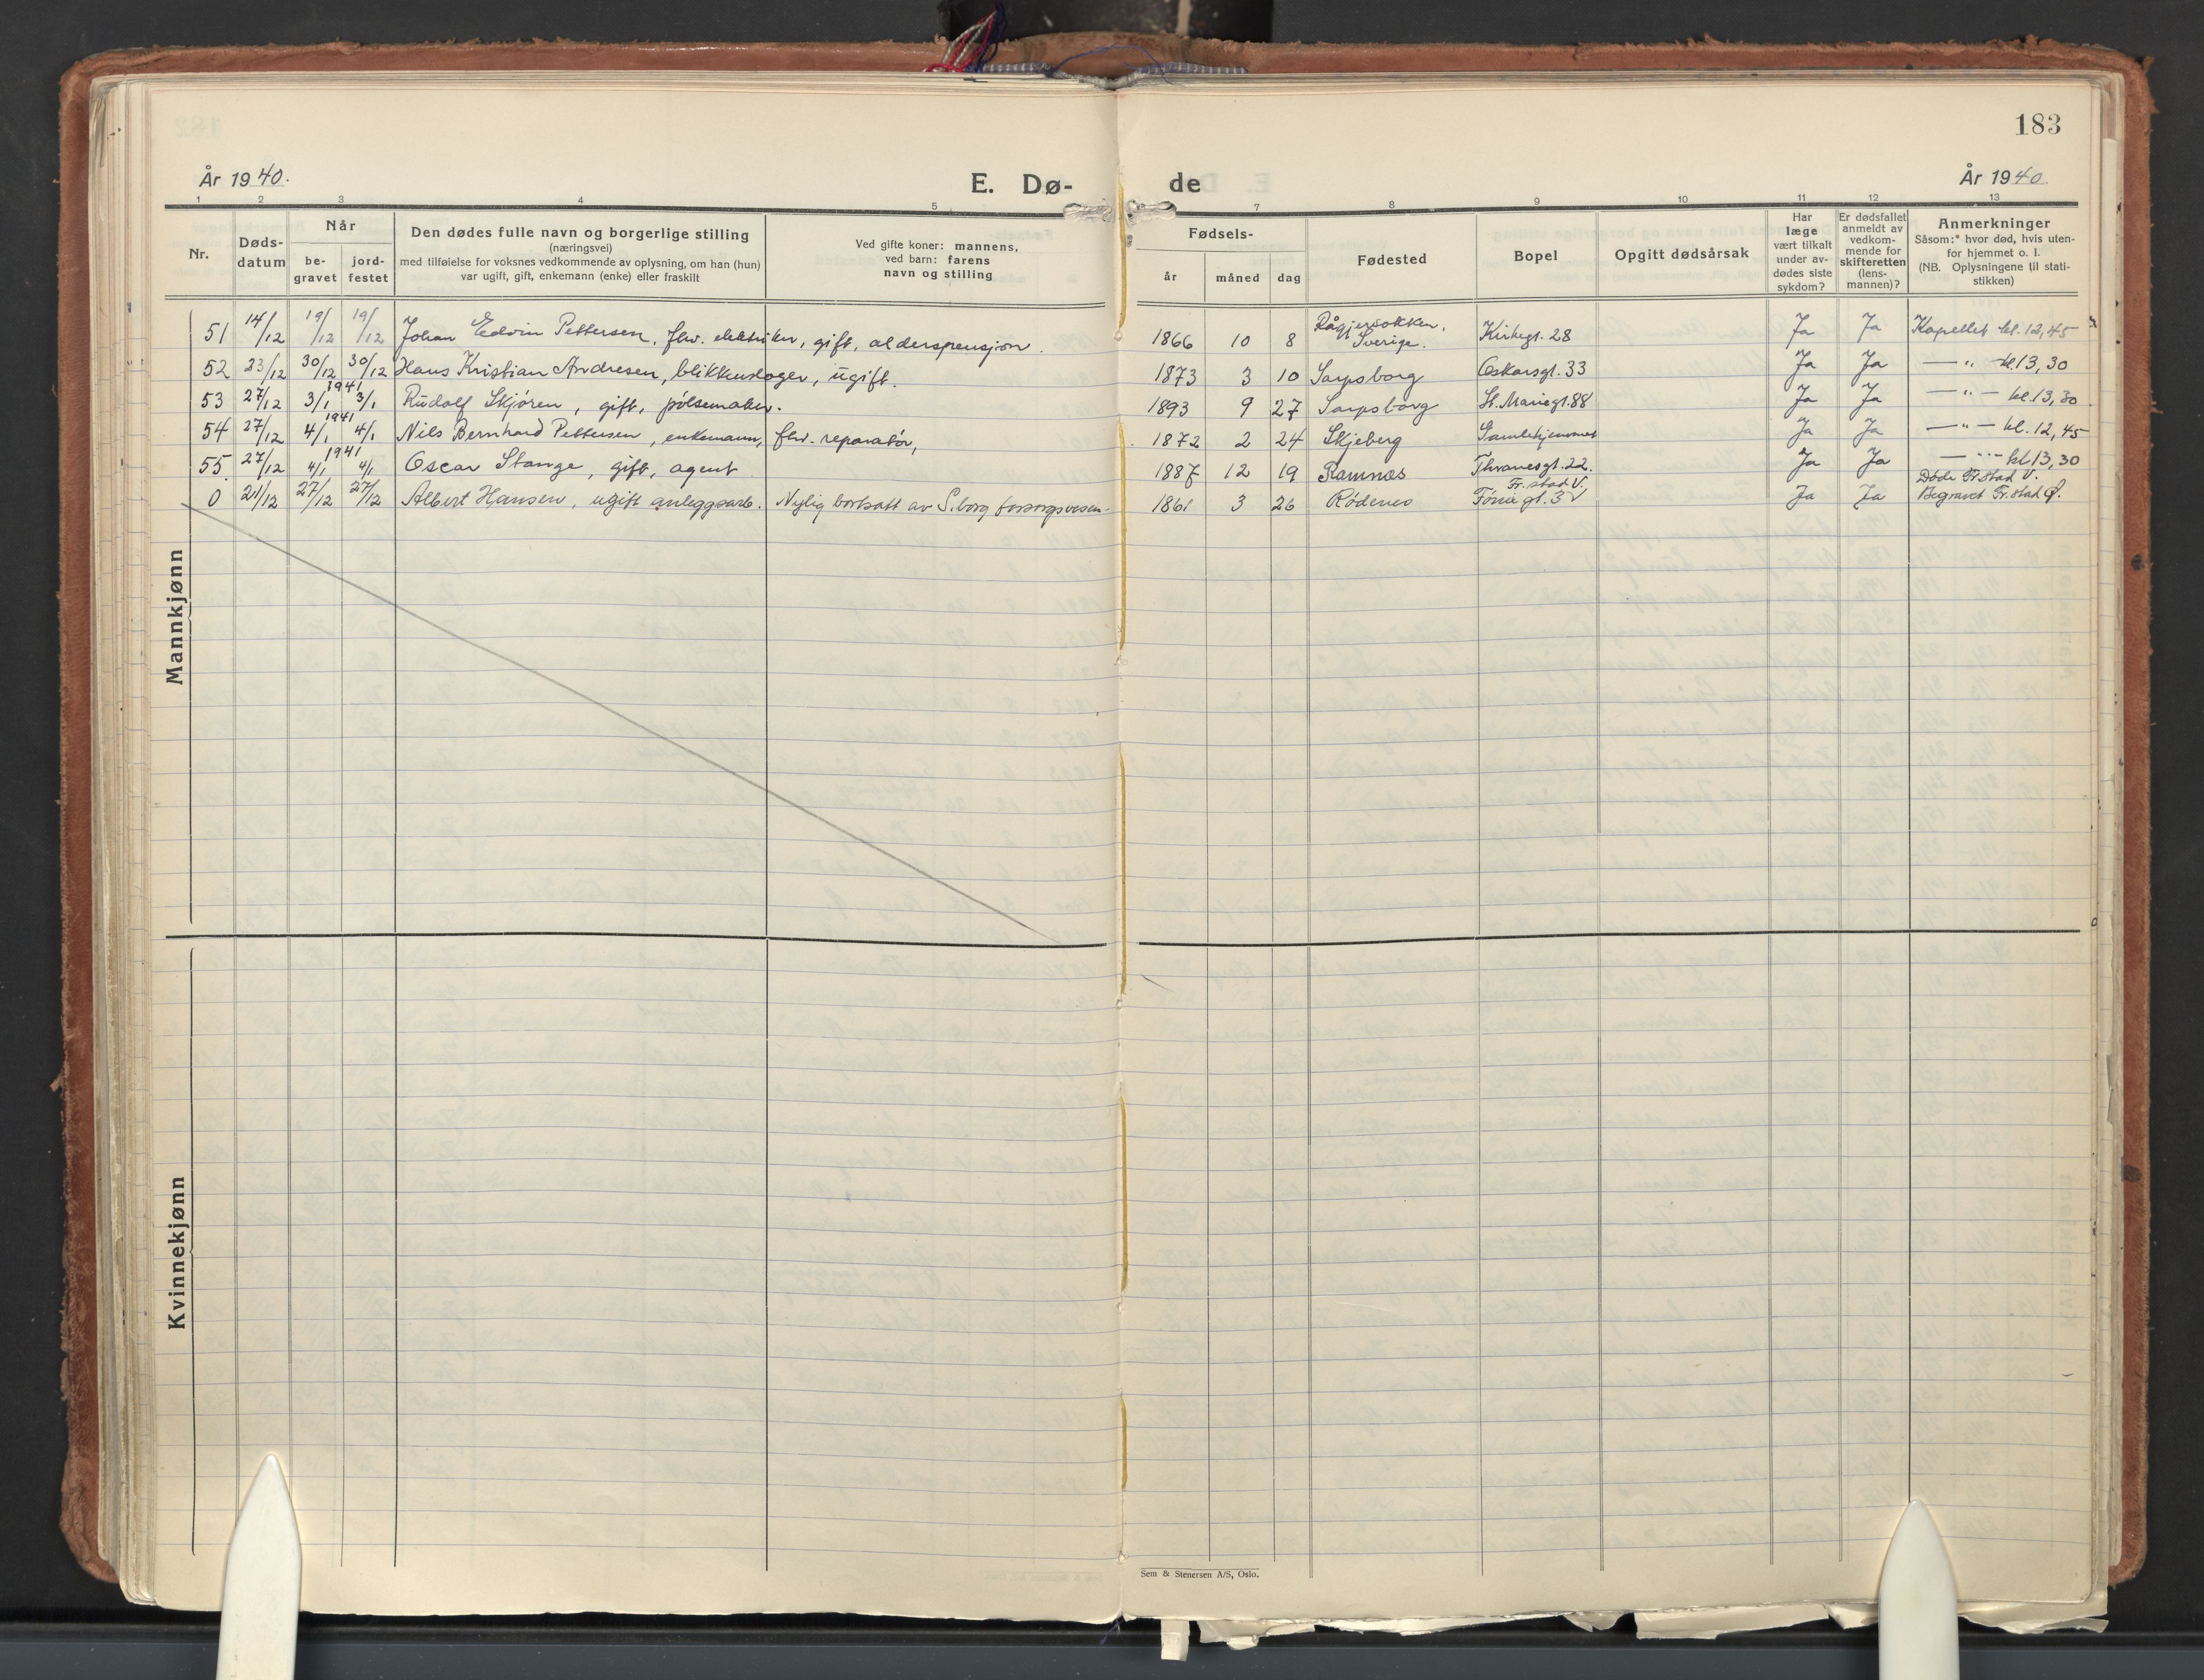 183
År 1940.
E. Dø-
de
År 1940.
1 2 3 4 5 7 8 9 10 11 12 13
Nr.
Døds-
datum
Når
be-
gravet
jord-
festet
Den dødes fulle navn og borgerlige stilling
(næringsvei)
med tilføielse for voksnes vedkommende av oplysning, om han (hun)
var ugift, gift, enkemann (enke) eller fraskilt
Ved gifte koner: mannens,
ved barn: farens
navn og stilling
Fødsels-
år
måned
dag
Fødested
Bopel
Opgitt dødsårsak
Har
læge
vært tilkalt
under av-
dødes siste
sykdom?
Er dødsfallet
anmeldt av
vedkom-
mende for
skifteretten
(lens-
mannen)?
Anmerkninger
Såsom:* hvor død, hvis uten-
for hjemmet o. l.
(NB. Oplysningene til stati-
stikken)
Mannkjønn
51 14/12 19/12 19/12 Johan Edvin Pettersen, fhv. elektriker, gift, alderspensjon. 1866 10 8 Sverige. Kirkegt. 28 Ja Ja Kapellet kl. 12,45
52 23/12 30/12 30/12 Hans Kristian Andresen, blikkenslager, ugift. 1873 3 10 Sarpsborg Oskarsgt. 33 Ja Ja — " — kl. 13,30
53 27/12 1941 3/1 3/1 Rudolf Skjøren, gift, pølsemaker. 1893 9 27 Sarpsborg St. Mariegt. 88 Ja Ja — " — kl. 13,30
54 27/12 1941 4/1 4/1 Nils Bernhard Pettersen, enkemann, fhv. reparatør, 1872 2 24 Skjeberg Gamlehjemmet Ja Ja — " — kl. 12,45
55 27/12 1941 4/1 4/1 Oscar Stange, gift, agent 1887 12 19 Ramnes Thranesgt. 22. Ja Ja — " — kl 13,30
0 21/12 27/12 27/12 Albert Hansen, ugift anleggsarb. Nylig bortsatt av S.borg forsorgsvesen. 1861 3 26 Rødenes Fr.stad V. gt. 3 Ja Ja Døde Fr.stad V. Begravet Fr.stad Ø.
Kvinnekjønn
Sem & Stenersen A/S, Oslo.